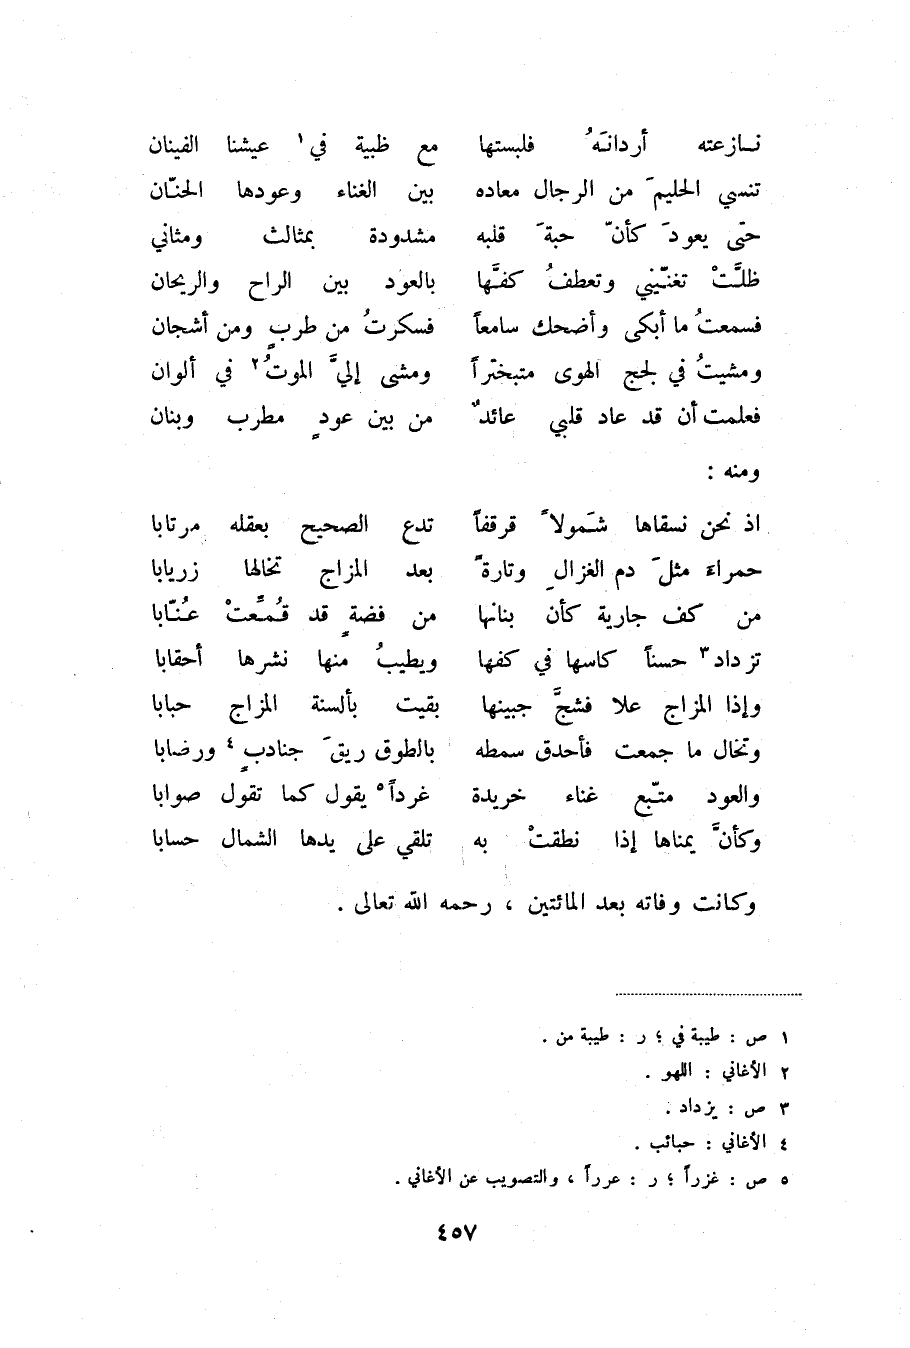 نازعته أردانَهُ فلبستها مع ظبية في١ عيشنا الفينان
تنسي الحليمَ من الرجال معاده بين الغناء وعودها الحنّان
حتى يعودَ كأنّ حبةَ قلبه مشدودة بمثالث ومثاني
ظلَّتْ تغنّيني وتعطفُ كفَّها بالعود بين الراح والريحان
فسمعتُ ما أبكى وأضحك سامعاً فسكرتُ من طربٍ ومن أشجان
ومشيتُ في لجج الهوى متبختراً ومشى إليَّ الموتُ٢ في ألوان
فعلمت أن قد عاد قلبي عائدٌ من بين عودٍ مطرب وبنان
ومنه :
اذ نحن نسقاها شَمولاً قرقفاً تدع الصحيح بعقله مرتابا
حمراءَ مثلَ دم الغزالِ وتارةً بعد المزاج تخالها زريابا
من كف جارية كأن بنانها من فضةٍ قد قُمِّعتْ عُنّابا
تزداد٣ حسناً كاسها في كفها ويطيبُ منها نشرها أحقابا
وإذا المزاج علا فشجَّ جبينها بقيت بألسنة المزاج حبابا
وتخال ما جمعت فأحدق سمطه بالطوق ريقَ جنادبٍ٤ ورضابا
والعود متّبع غناء خريدة غرداً٥ يقول كما تقول صوابا
وكأنَّ يمناها إذا نطقتْ به تلقي على يدها الشمال حسابا
وكانت وفاته بعد المائتين ، رحمه الله تعالى .
١ ص : طيبة في ؛ ر : طيبة من .
٢ الأغاني : اللهو .
٣ ص : يزداد .
٤ الأغاني : حبائب .
٥ ص : غزراً ؛ ر : عرراً ، والتصويب عن الأغاني .
٤٥٧